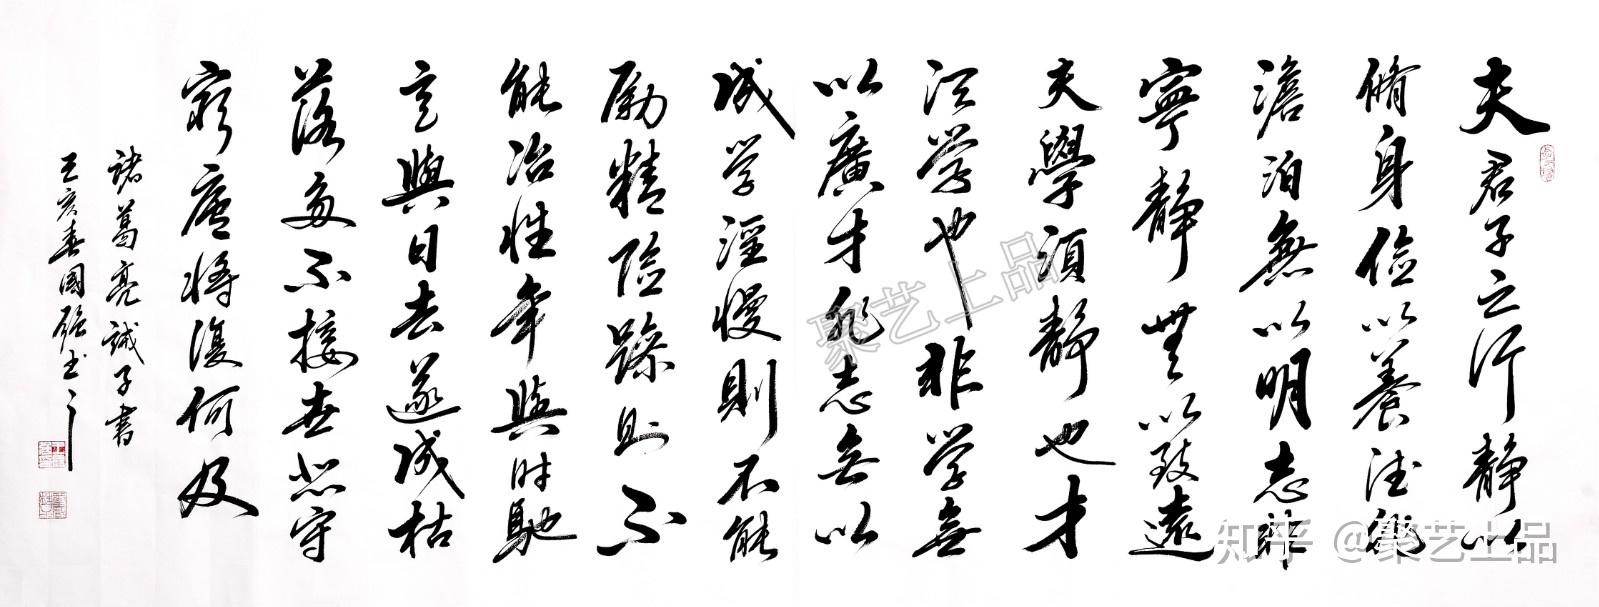 夫君子之行静以
脩身俭以養德非
澹泊無以明志非
寧静無以致遠
夫學須静也才
须学也非学無
以廣才非志無以
成学淫慢則不能
励精险躁则不
能冶性年與时馳
意與日去遂成枯
落多不接世悲守
窮廬將復何及
諸葛亮誡子書
己亥春國强书
聚艺上品
知乎 @聚艺上品